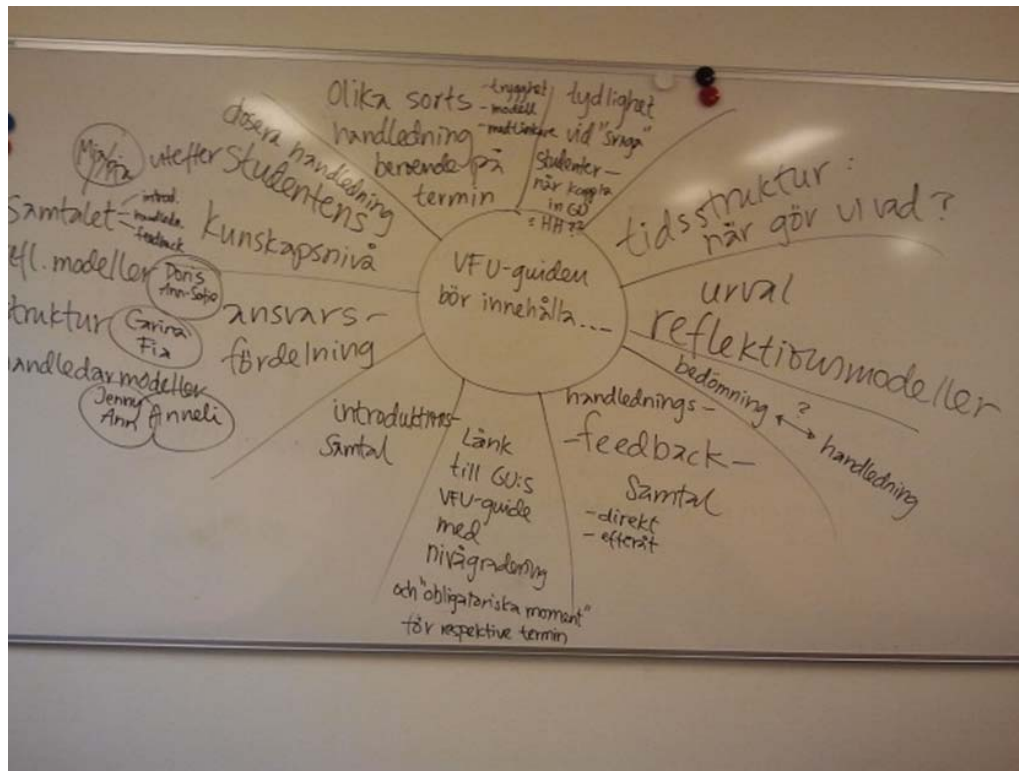 VFU-guiden
bör innehålla...
Olika sorts
handledning
beroende på
termin
- trygghet
- modell
- medtänkare
tydlighet
vid "svaga"
studenter –
när koppla
in GU
tidsstruktur:
när gör vi vad?
urval
reflektionsmodeller
bedömning ? handledning
handlednings-
-feedback-
samtal
- direkt
- efteråt
Länk
till GU:s
VFU-guide
med
nivågradering
och "obligatoriska moment"
för respektive termin
introduktions-
samtal
ansvars-
fördelning
dosera handledning
utefter studentens
kunskapsnivå
Samtalet
introd.
handledn.
feedback
fl. modeller
Doris
Ann-Sofie
truktur
Carina
Fia
andledarmodeller
Jenny
Ann
Anneli